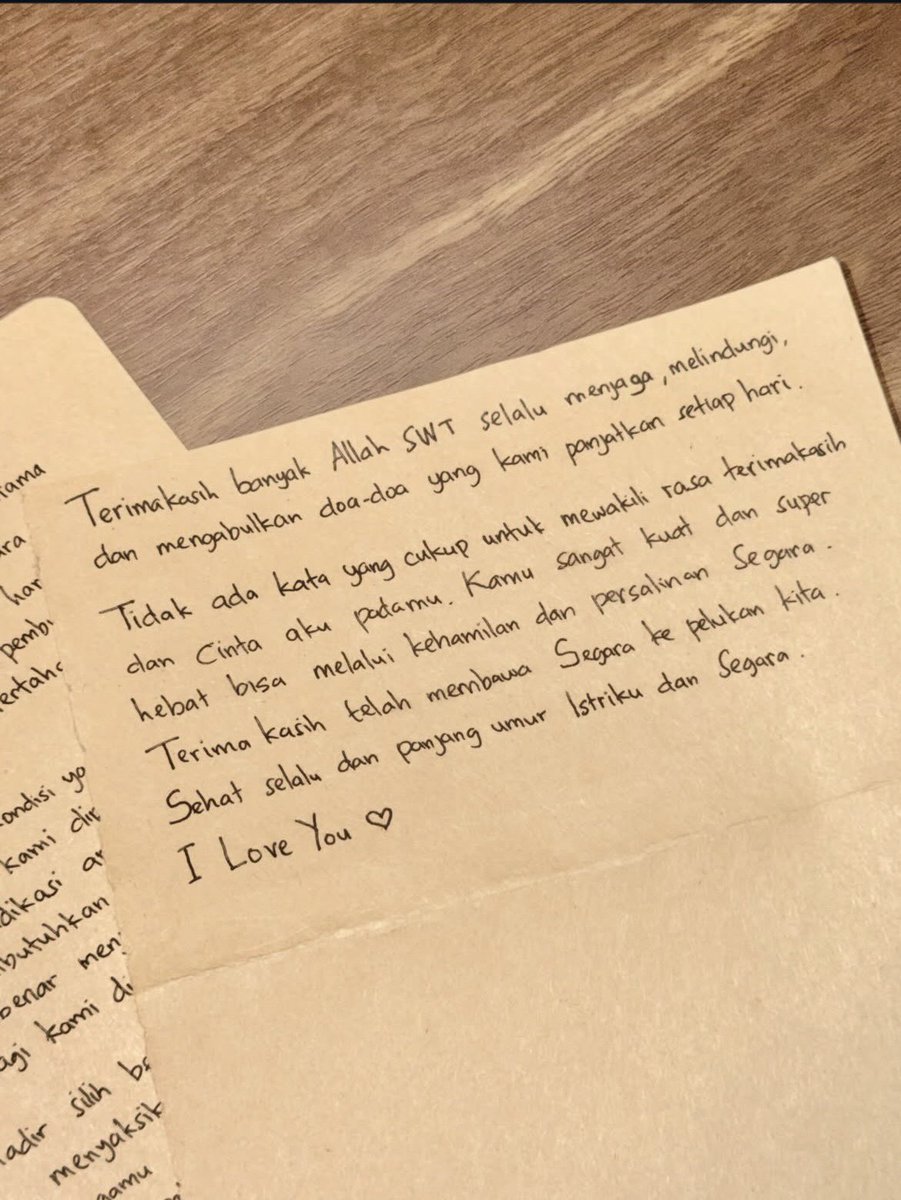 Terimakasih banyak Allah SWT selalu menjaga, melindungi,
dan mengabulkan doa-doa yang kami panjatkan setiap hari.
Tidak ada kata yang cukup untuk mewakili rasa terimakasih
dan Cinta aku padamu. Kamu sangat kuat dan super
hebat bisa melalui kehamilan dan persalinan Segara.
Terima kasih telah membawa Segara ke pelukan kita.
Sehat selalu dan panjang umur Istriku dan Segara.
I Love You ♡
har
kami
butuhkan
kami
adir silih